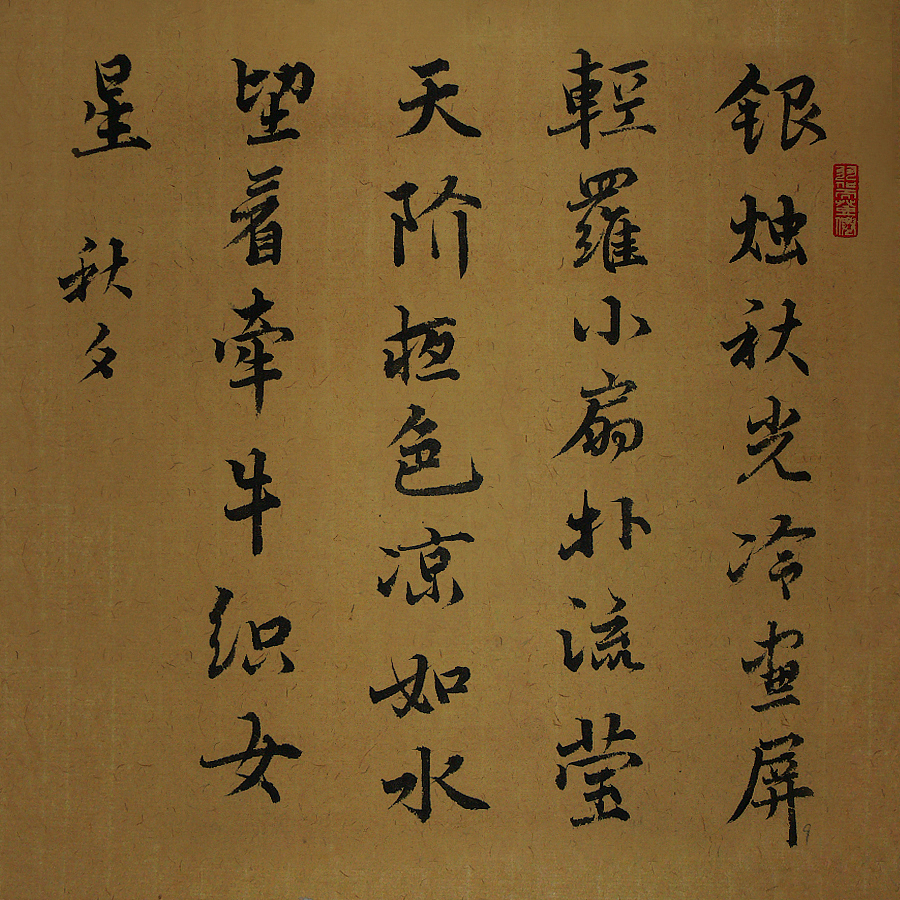 銀烛秋光冷畫屏
輕羅小扇扑流莹
天阶夜色凉如水
望着牽牛织女
星 秋夕
9